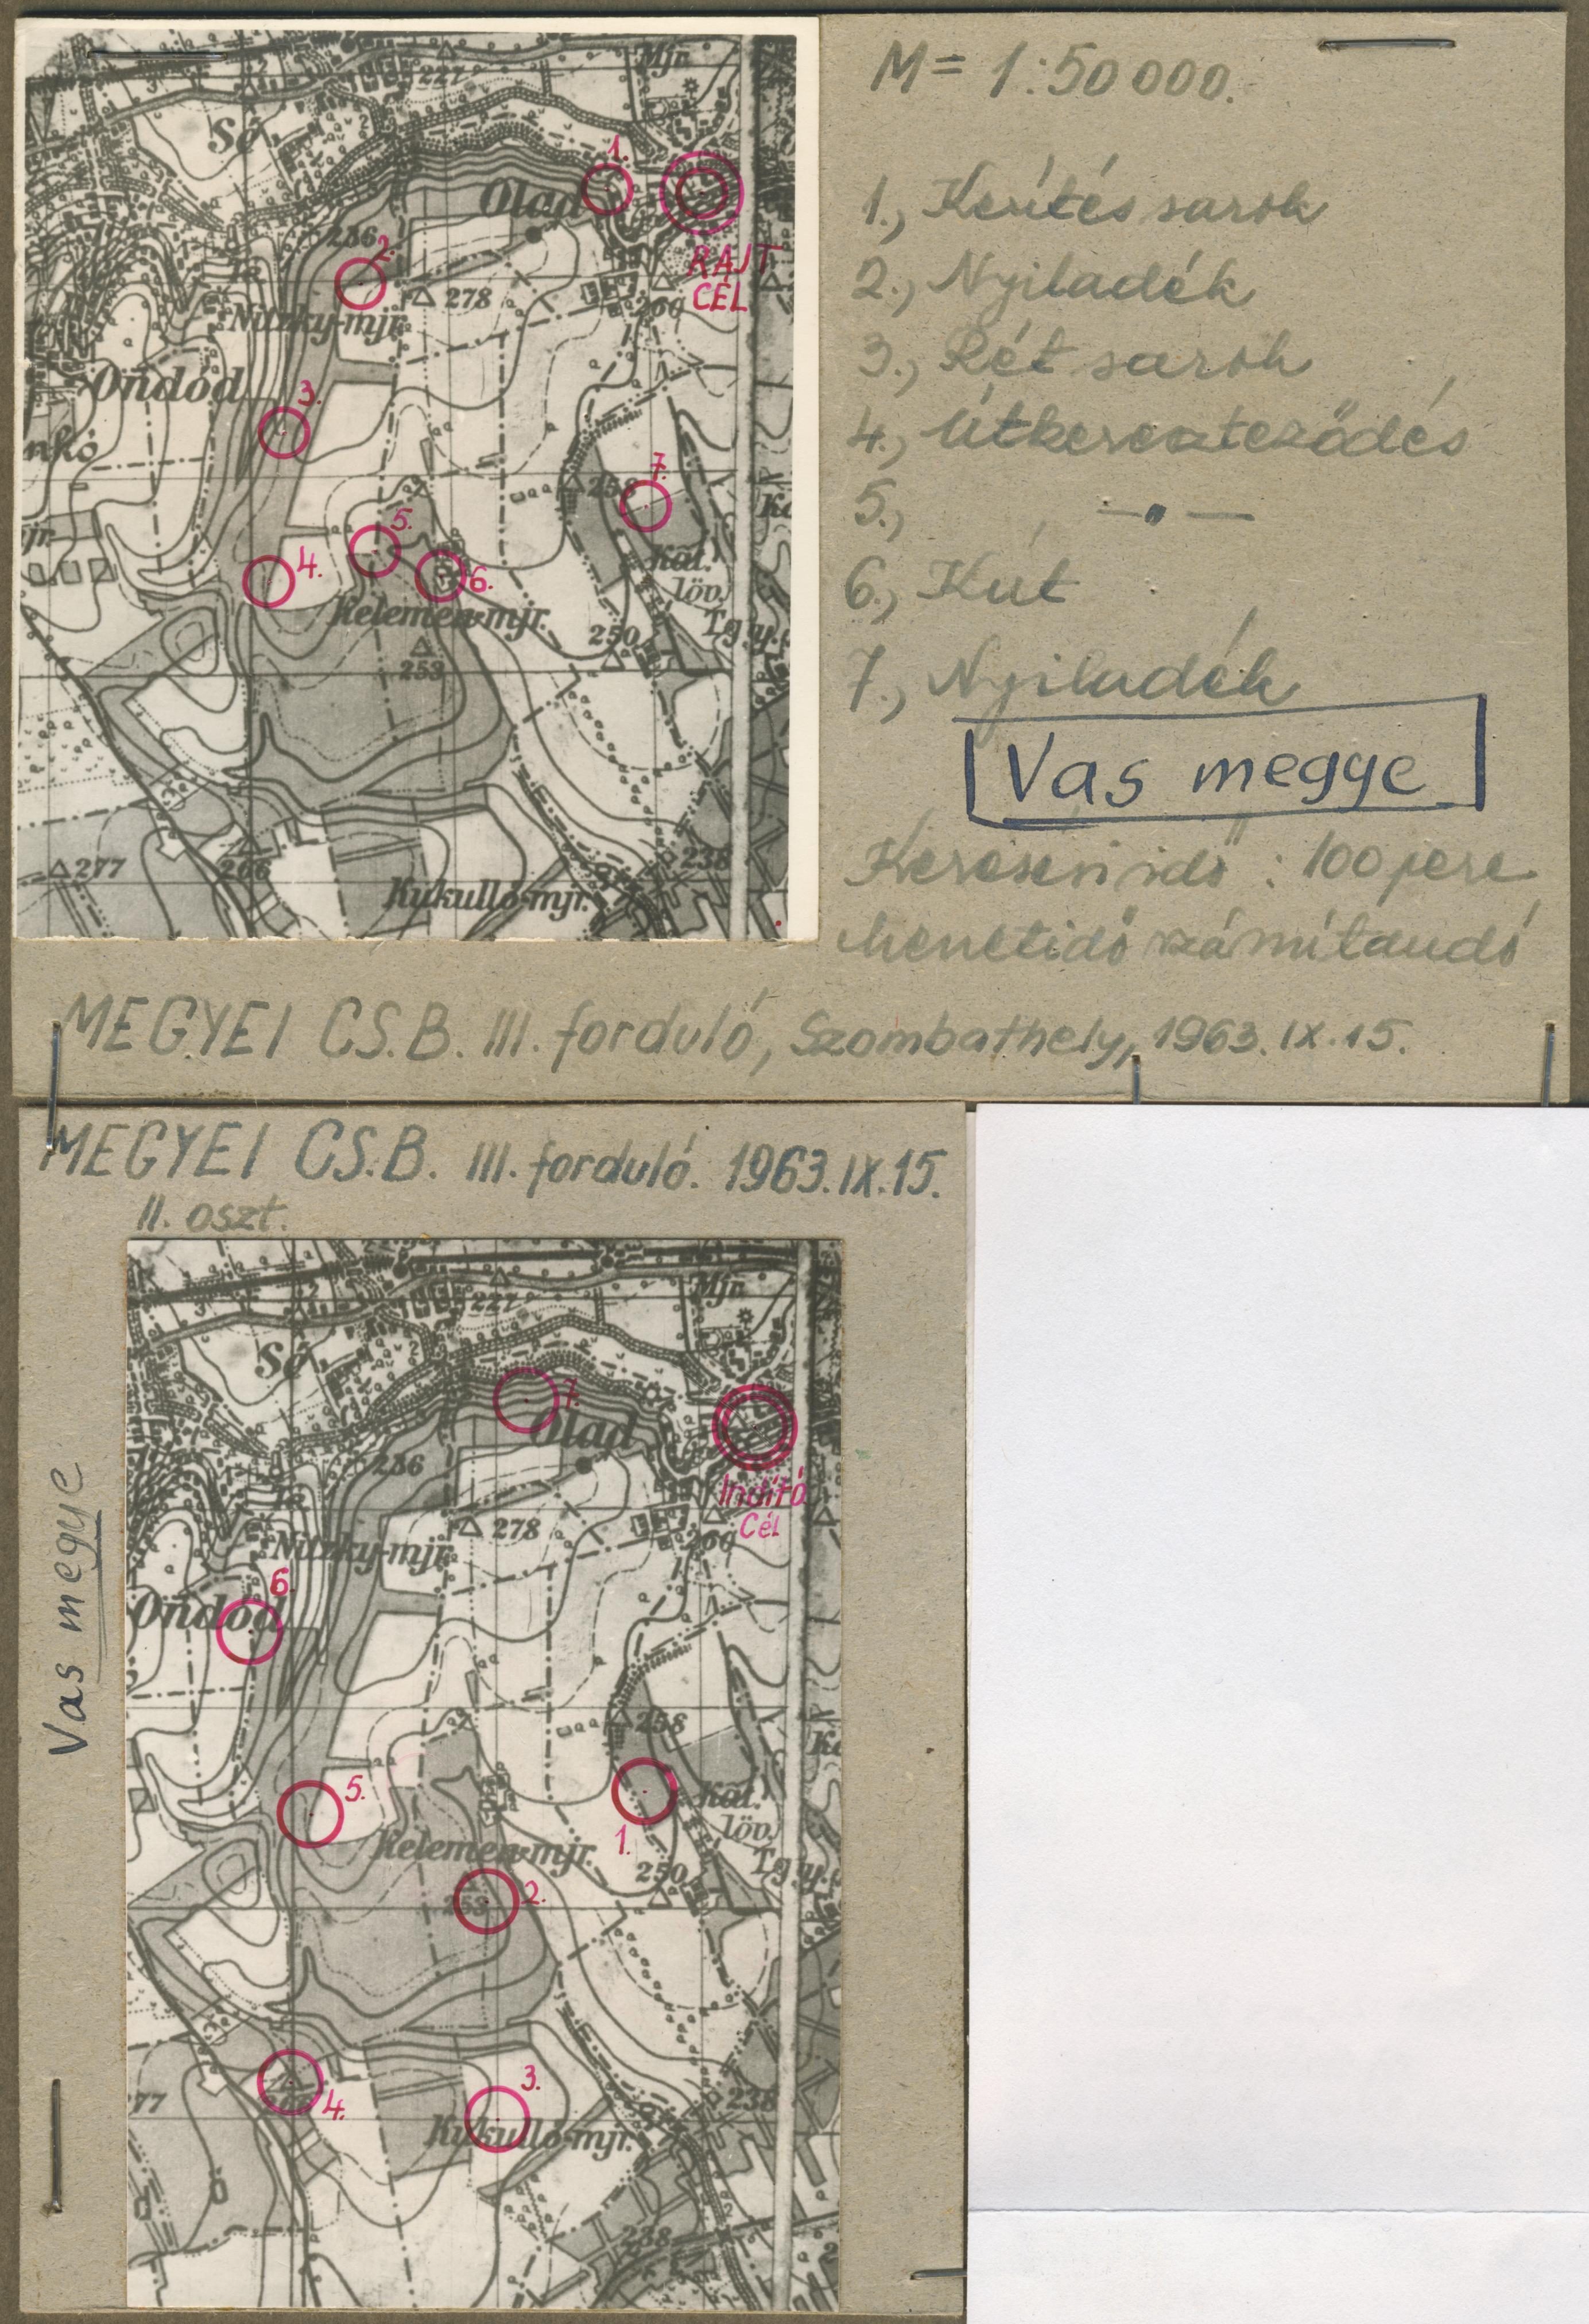 Mjr.
227
Sé
1.
Olad
236
2.
RAJT
CÉL
278
260
Nitzky-mjr.
Ondód
3.
nkó
7.
258
5.
4.
6.
Kat.
löv.
Kelemen-mjr.
Tgy.
250
253
277
266
238
Kukulló-mjr.
M = 1:50 000.
1., Kerítés sarok
2., Nyiladék
3., Rét sarok
4., Útkereszteződés
5., —〃—
6., Kút
7., Nyiladék
Vas megye
MEGYEI CS.B. III. forduló, Szombathely, 1963. IX. 15.
MEGYEI CS.B. III. forduló. 1963. IX. 15.
II. oszt.
Vas megye
Mjr.
227
Sé
7.
Olad
236
Indító
Cél
278
260
Nitzky-mjr.
6.
Ondód
258
5.
Kat.
löv.
1.
Kelemen-mjr.
Tgy.
250
2.
253
77
4.
3.
238
Kukulló-mjr.
238